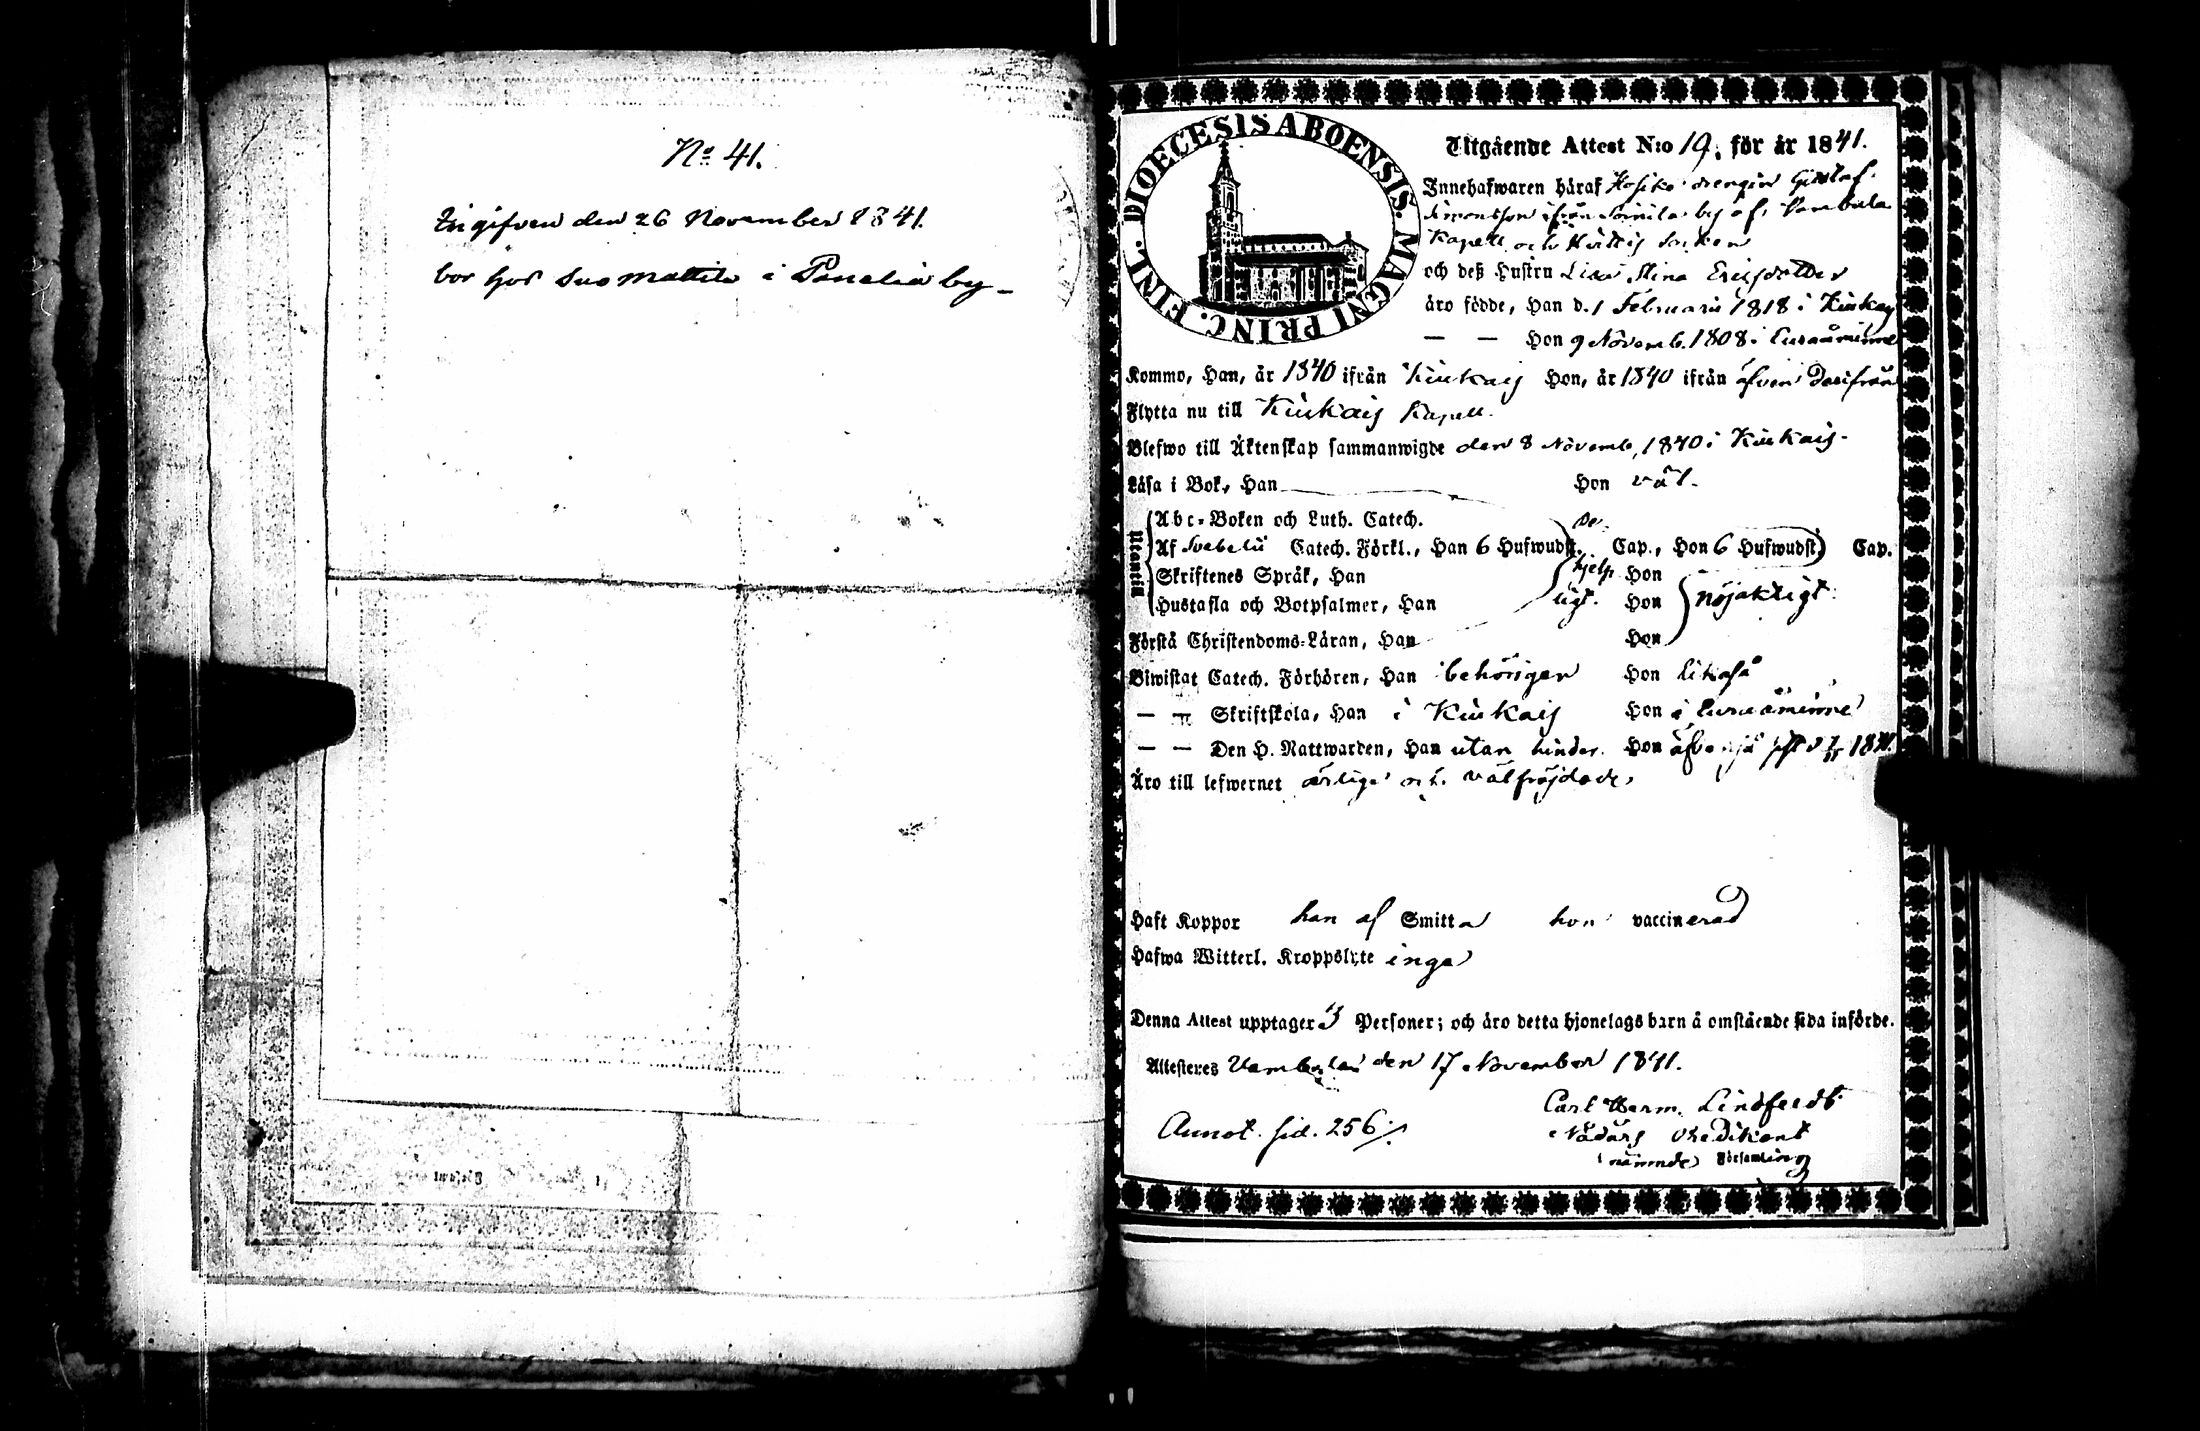 No 41.
Ingifven den 26 November 1841.
bor hos Suomattila i Panelia by –
DIOECESIS ABOENSIS. MAGNI PRINC. FINL.
Utgående Attest N:o 19, för år 1841.
Innehafwaren häraf drengen Gustaf
Simonsson ifrån by af Vambula
Kapell och Huittis Socken
och deß Hustru Lisa Stina Ericsdotter
äro födde, Han d. 1 Februarii 1818 i Kiukais
— — Hon 9 Novemb. 1808 i Euraåminne
Komme, Han, år 1840 ifrån Kiukais Hon, år 1840 ifrån äfven derifrån
Flytta nu till Kiukais Kapell.
Blefwo till Äktenskap sammanwigde den 8 Novemb. 1840 i Kiukais.
Läsa i Bok, Han Hon väl.
Utantill
Abc-Boken och Luth. Catech.
Af Svebelii Catech. Förkl., Han 6 Hufwudst. Cap., Hon 6 Hufwudst. Cap.
Skriftenes Språk, Han hjelp Hon
Hustafla och Botpsalmer, Han ligt. Hon nöjaktigt.
Förstå Christendoms-Läran, Han Hon
Biwistat Catech. Förhören, Han behörigen Hon likaså
— — Skriftskola, Han i Kiukais Hon i Euraåminne
— — Den H. Nattwarden, Han utan hinder. Hon 1841.
Äro till lefwernet ärlige och välfrejdade.
Haft Koppor han af Smitta hon vaccinerad
Hafwa Witterl. Kroppslyte inga
Denna Attest upptager 3 Personer; och äro detta hjonelags barn å omstående sida införde.
Attesteras Vambula den 17 November 1841.
Carl Herm. Lindstedt
Annot. sid. 256
Nådårs Predikant
Församling